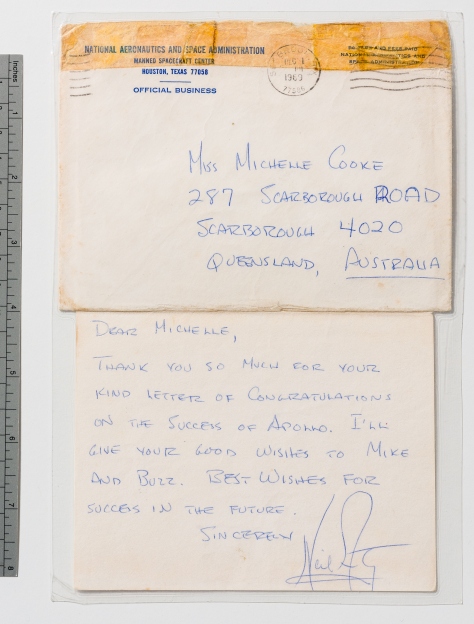 NATIONAL AERONAUTICS AND SPACE ADMINISTRATION
MANNED SPACECRAFT CENTER
HOUSTON, TEXAS 77058
OFFICIAL BUSINESS
1969
POSTAGE AND FEES PAID
NATIONAL AERONAUTICS AND
SPACE ADMINISTRATION
MISS MICHELLE COOKE
287 SCARBOROUGH ROAD
SCARBOROUGH 4020
QUEENSLAND, AUSTRALIA
DEAR MICHELLE,
THANK YOU SO MUCH FOR YOUR
KIND LETTER OF CONGRATULATIONS
ON THE SUCCESS OF APOLLO. I'LL
GIVE YOUR GOOD WISHES TO MIKE
AND BUZZ. BEST WISHES FOR
SUCCESS IN THE FUTURE.
SINCERELY
Neil
inches
1
2
3
4
5
6
7
8